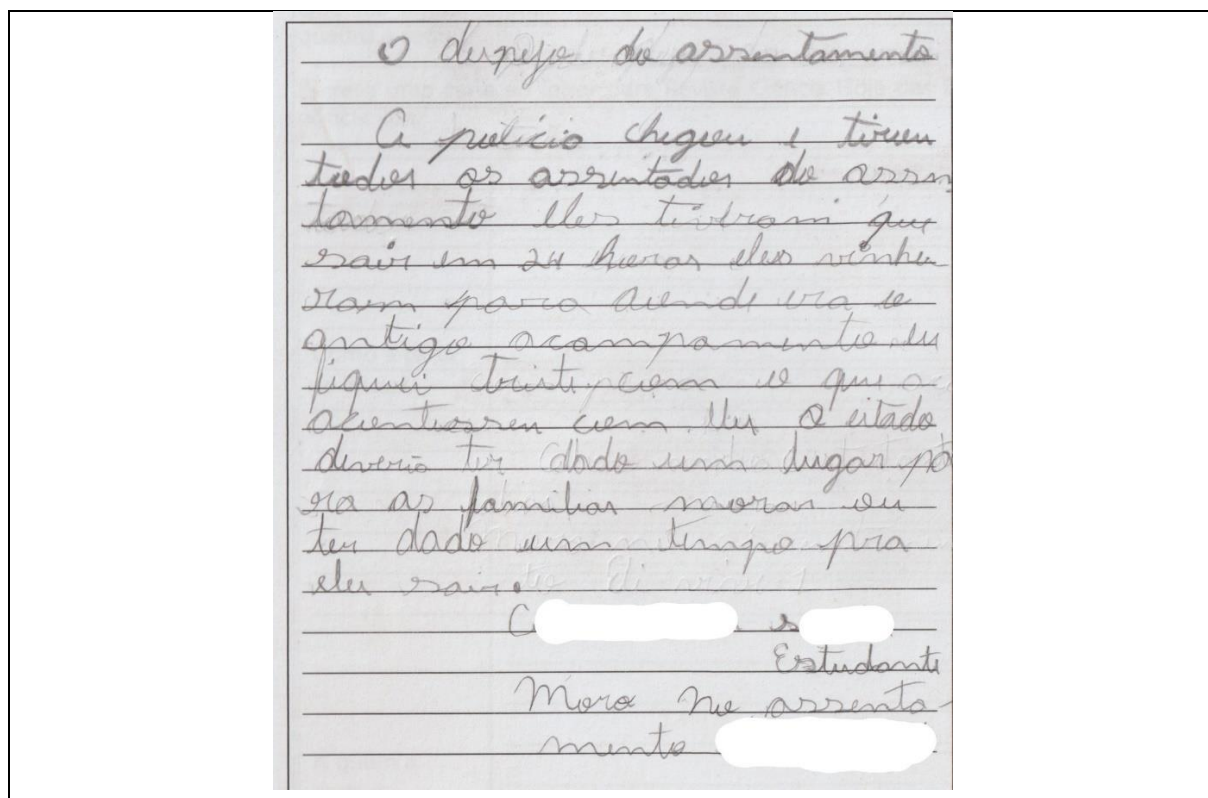 O dispejo do assentamento
A polícia chegou e tirou
todos os assentados do assen
tamento eles tiveram que
sair em 24 horas eles vinhe
ram para aonde era o
antigo acampamento eu
fiquei triste com o que
aconteseu com eles O estado
deveria ter dado um lugar pa
ra as familias morar ou
ter dado um tempo pra
eles sair.
C s
Estudante
Mora No assenta-
mento